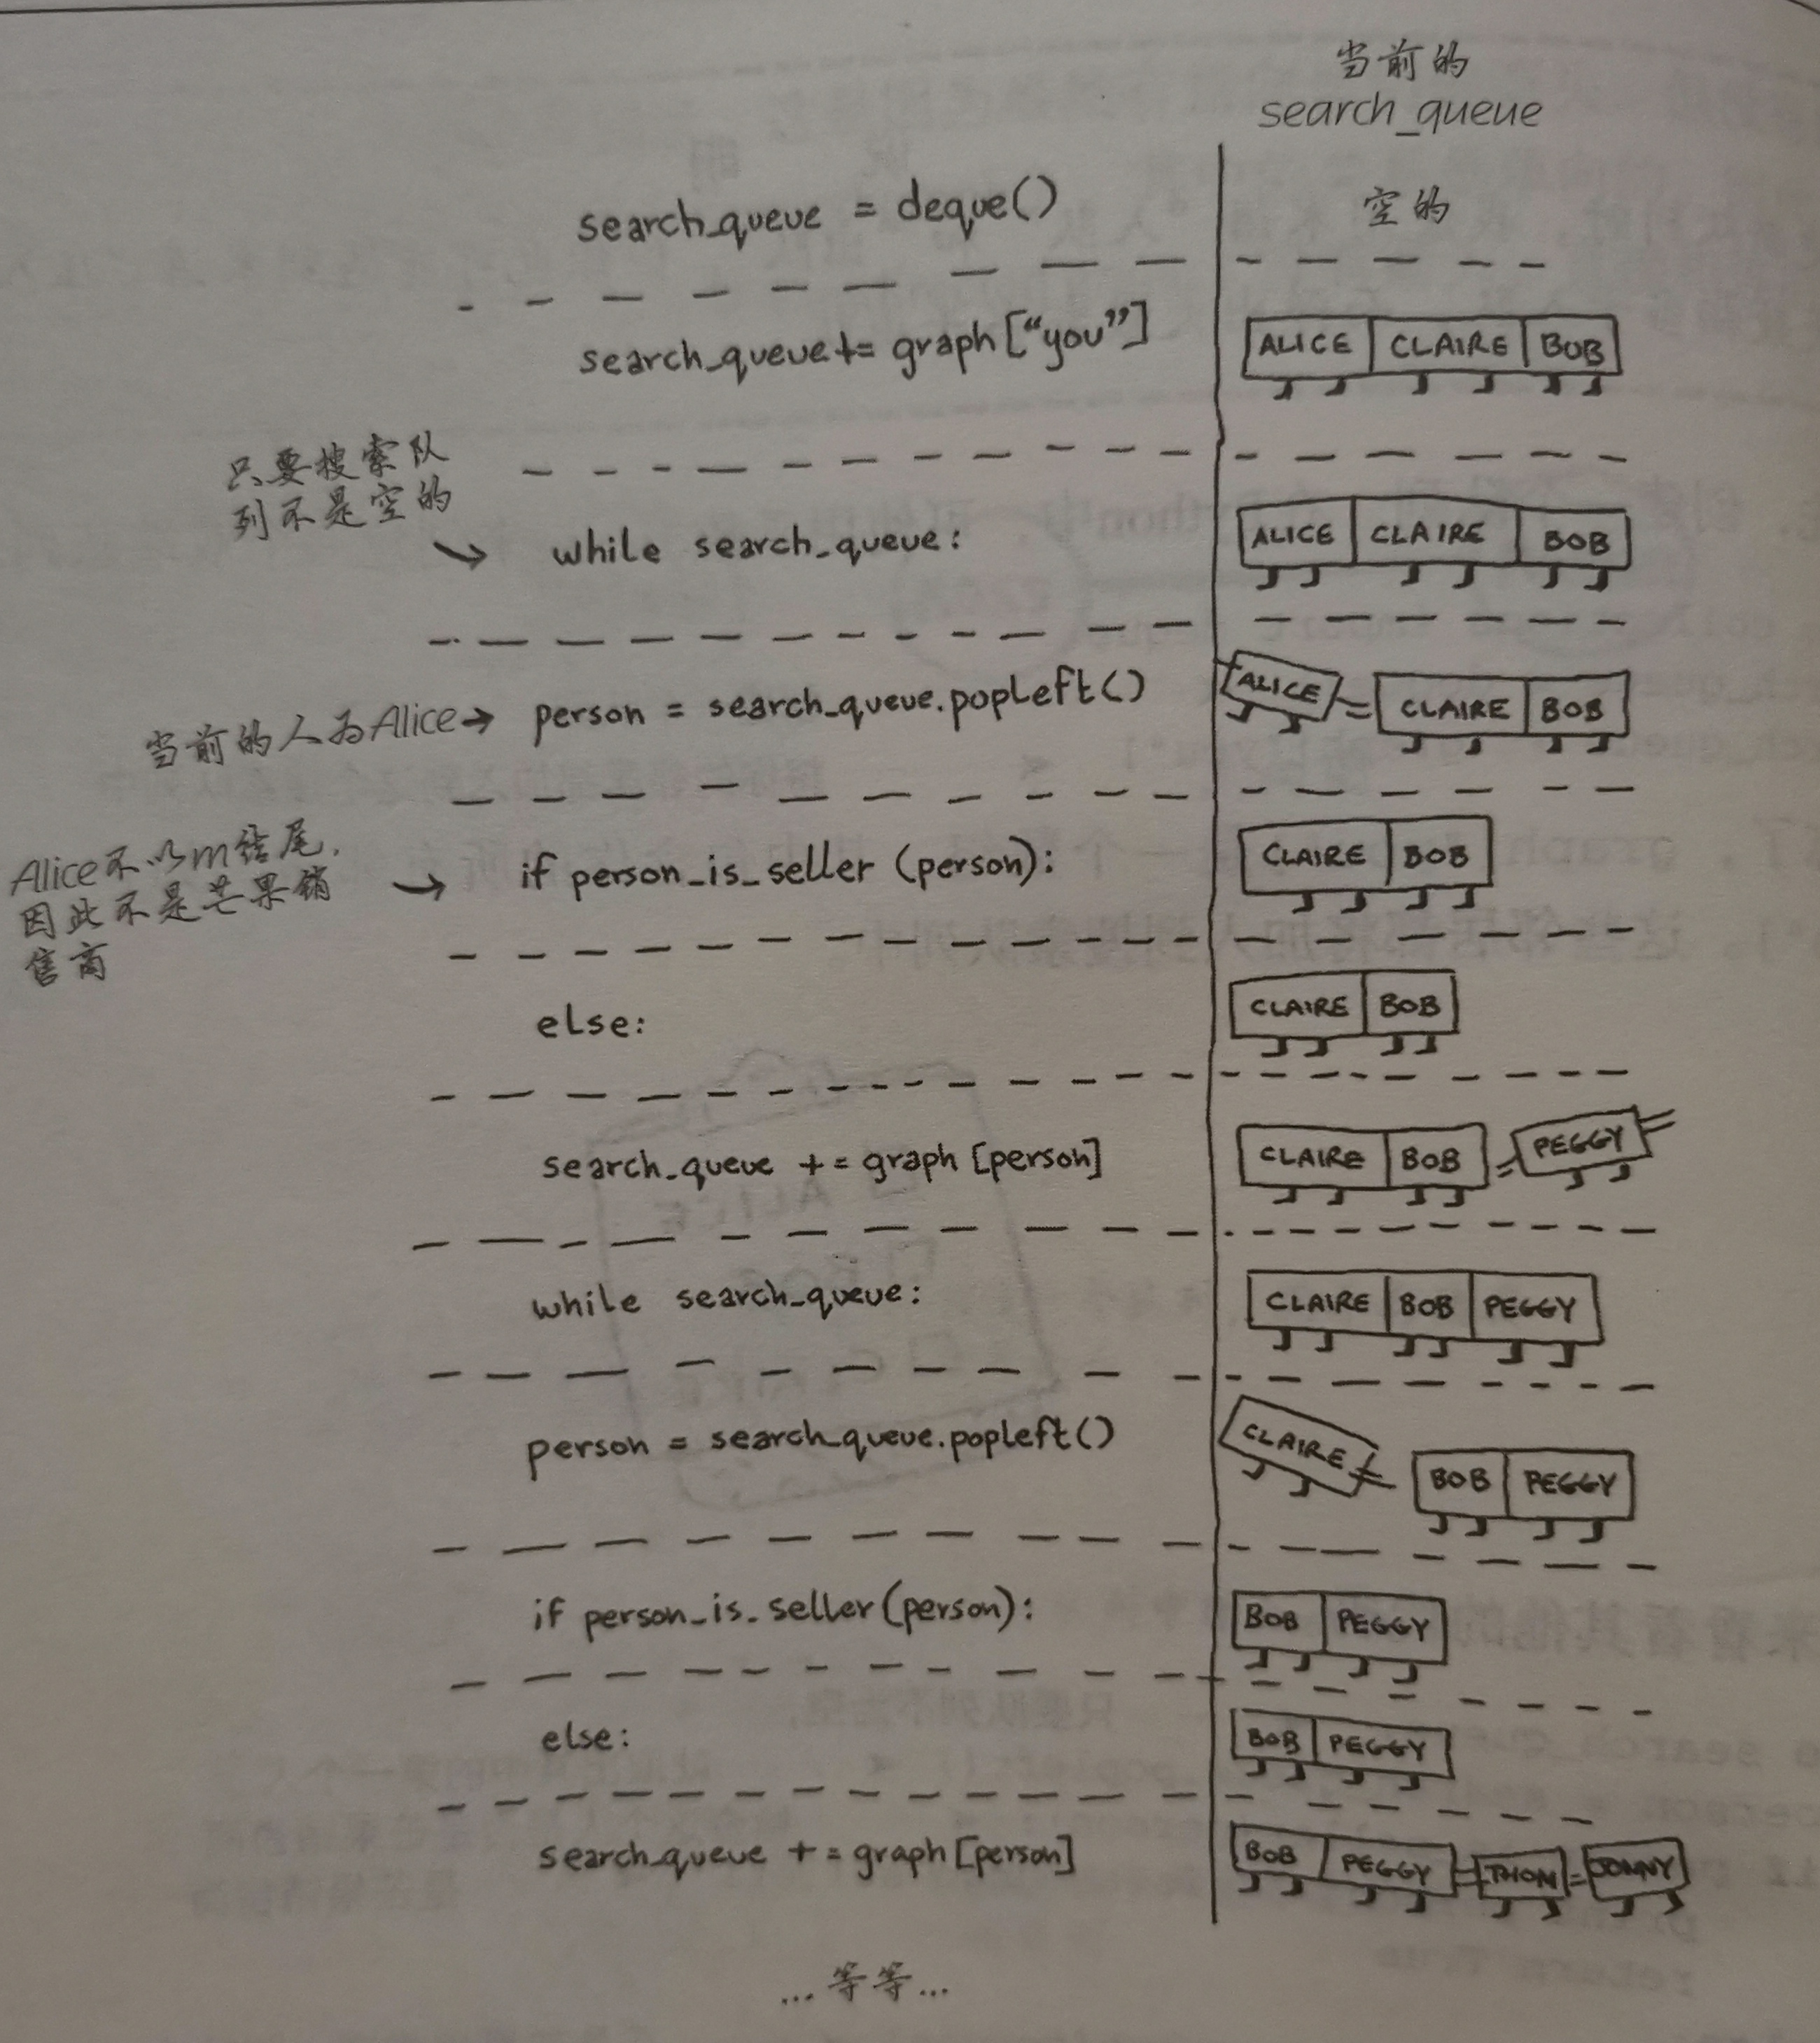 当前的
search_queue
search_queue = deque()
空的
search_queue += graph["you"]
ALICE CLAIRE BOB
只要搜索队
列不是空的
while search_queue:
ALICE CLAIRE BOB
当前的人为Alice→ person = search_queue.popleft()
ALICE CLAIRE BOB
Alice不以m结尾，
因此不是芒果销
售商
if person_is_seller (person):
CLAIRE BOB
else:
CLAIRE BOB
search_queue += graph [person]
CLAIRE BOB PEGGY
while search_queue:
CLAIRE BOB PEGGY
person = search_queue.popleft()
CLAIRE BOB PEGGY
if person_is_seller (person):
BOB PEGGY
else:
BOB PEGGY
search_queue += graph [person]
BOB PEGGY THOM JONNY
...等等...